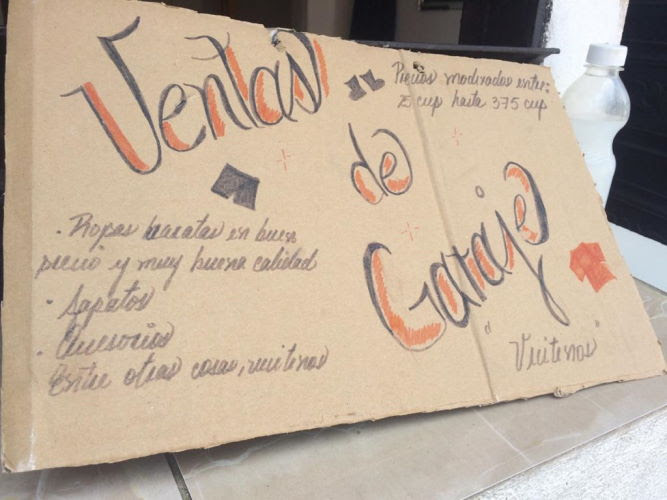 Ventas
de
Garaje
Precios modicados entre:
25 cup hasta 375 cup
· Ropas baratas en buen
precio y muy buena calidad
· Sapatos
· Accesorios
Entre otras cosas, visitenos
"Visitenos"